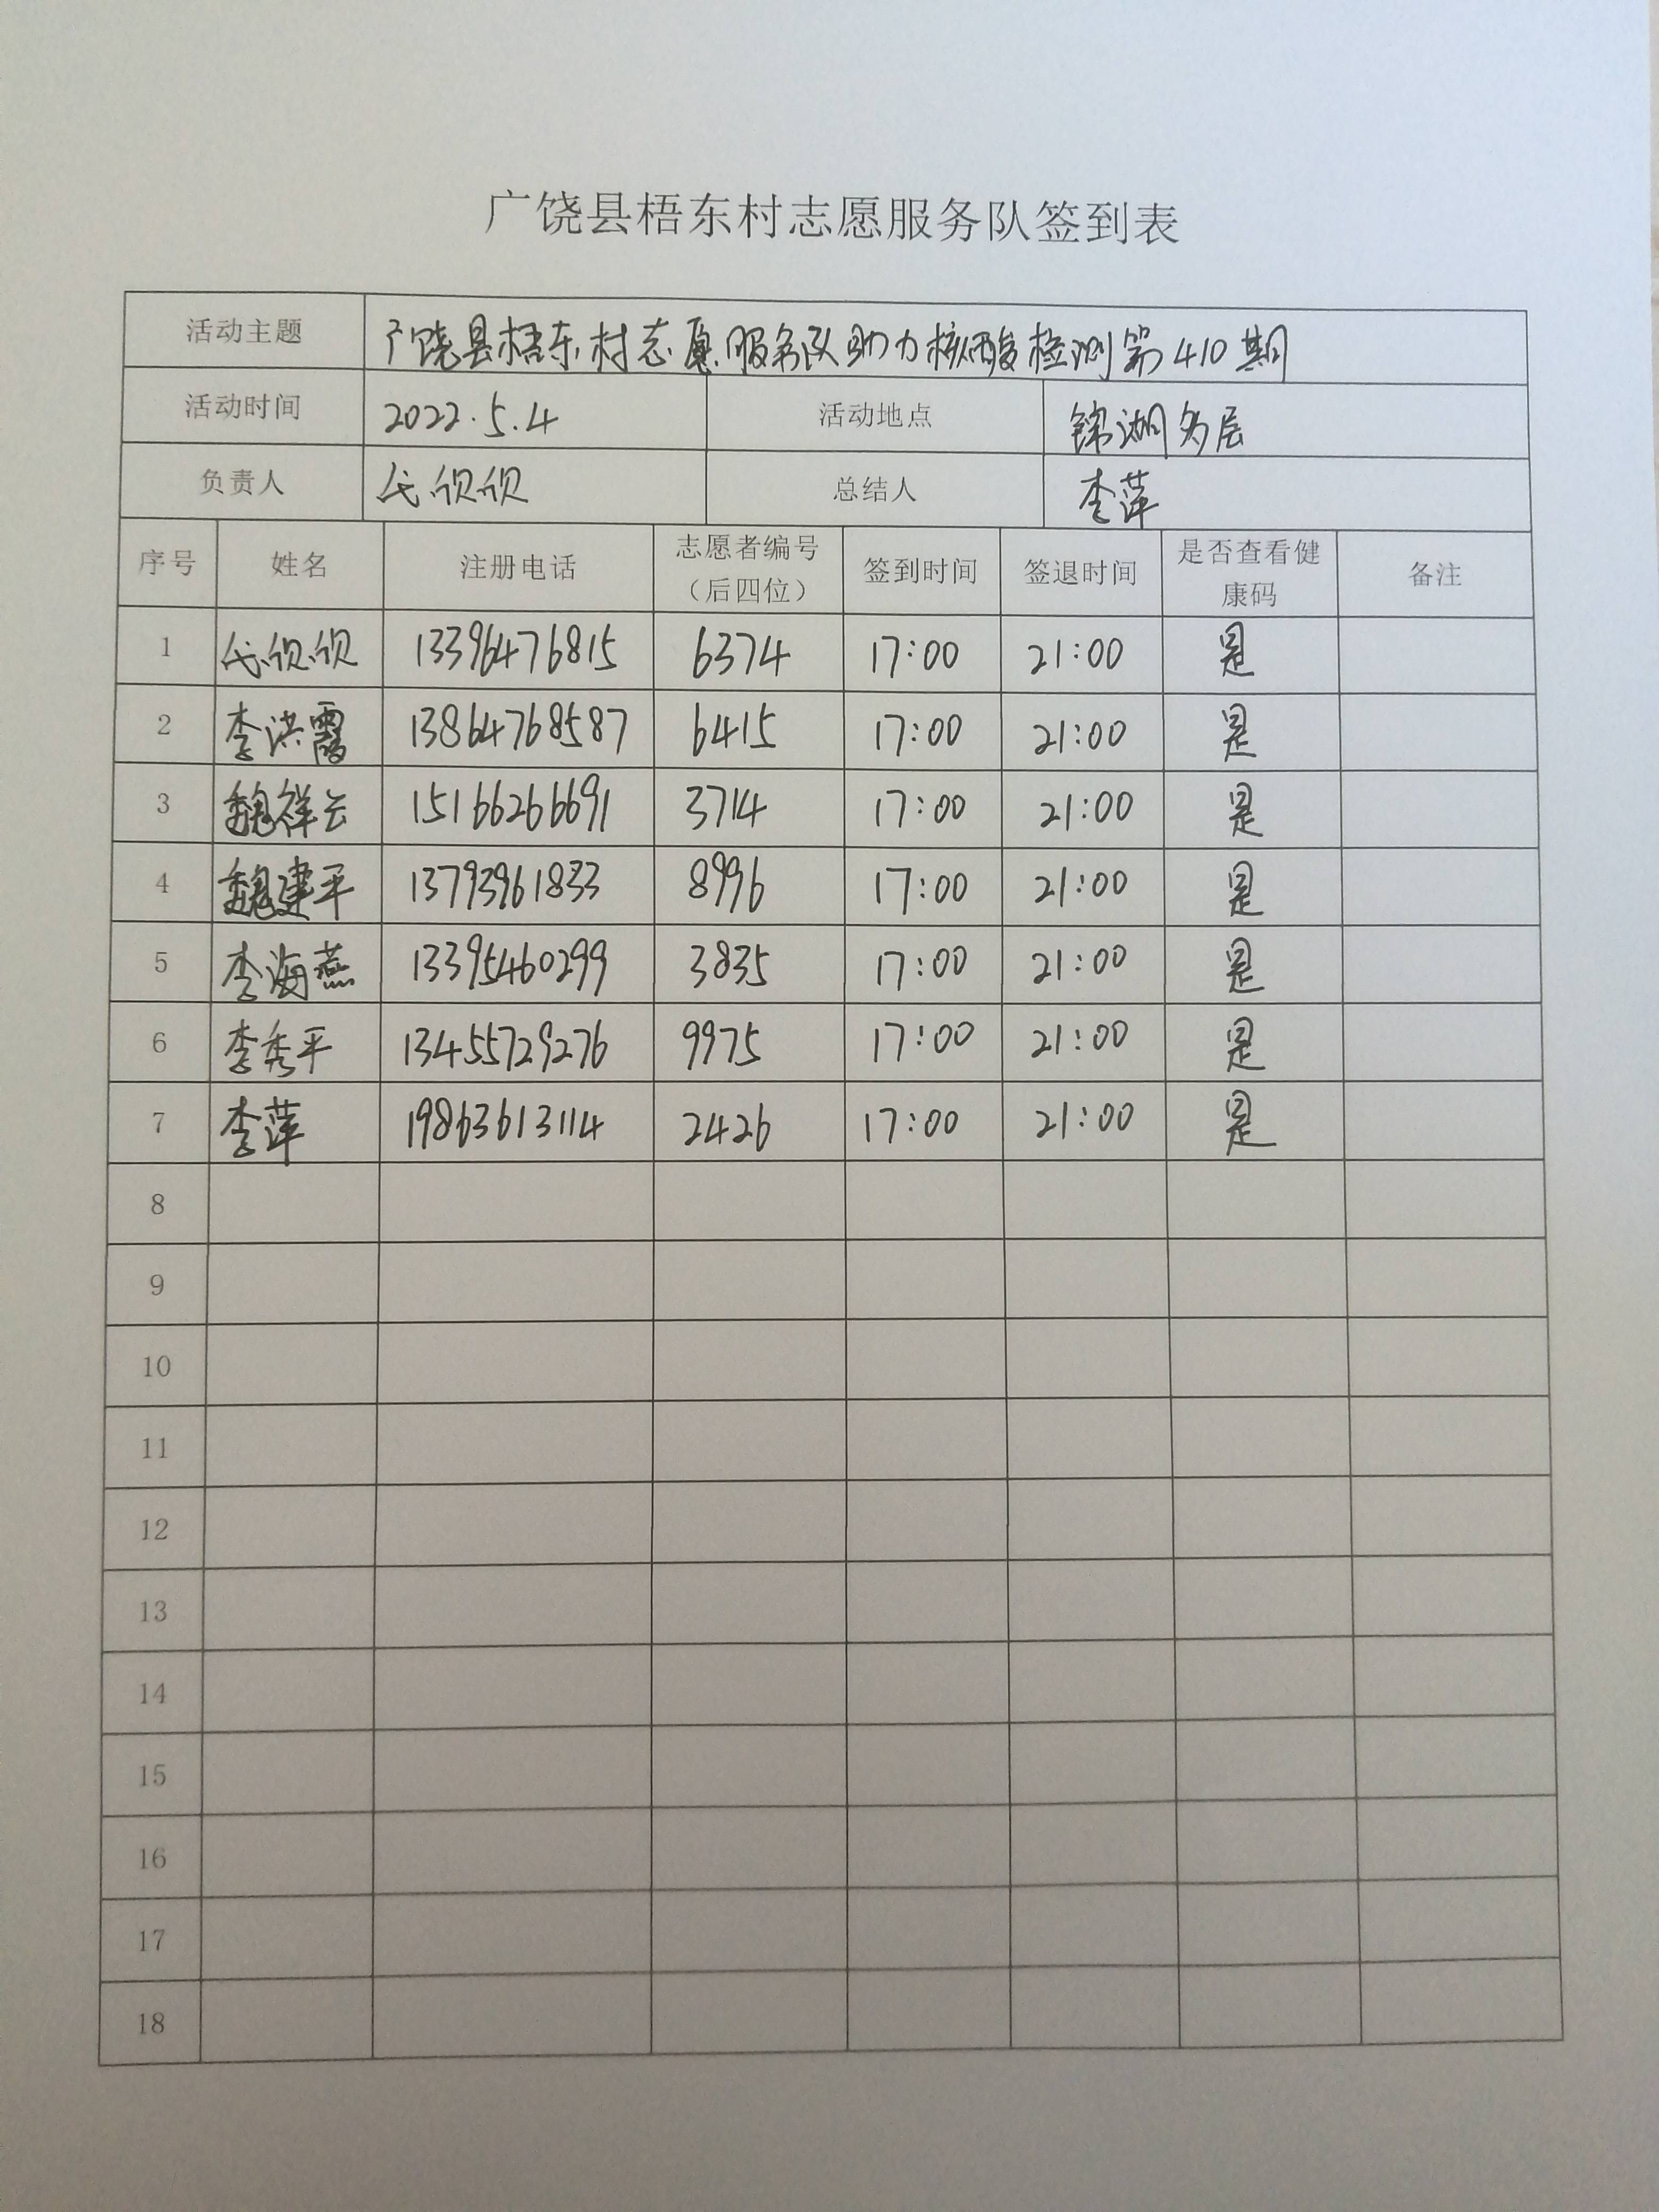 广饶县梧东村志愿服务队签到表
活动主题 广饶县梧东村志愿服务队助力核酸检测第410期
活动时间 2022.5.4 活动地点 锦湖多层
负责人 代欣欣 总结人 李萍
序号 姓名 注册电话 志愿者编号（后四位） 签到时间 签退时间 是否查看健康码 备注
1 代欣欣 13396476815 6374 17:00 21:00 是
2 李洪霞 13864768587 6415 17:00 21:00 是
3 魏祥云 15166266691 3714 17:00 21:00 是
4 魏建平 13793961833 8996 17:00 21:00 是
5 李海燕 13395460299 3835 17:00 21:00 是
6 李秀平 13455729276 9975 17:00 21:00 是
7 李萍 19863613114 2426 17:00 21:00 是
8
9
10
11
12
13
14
15
16
17
18